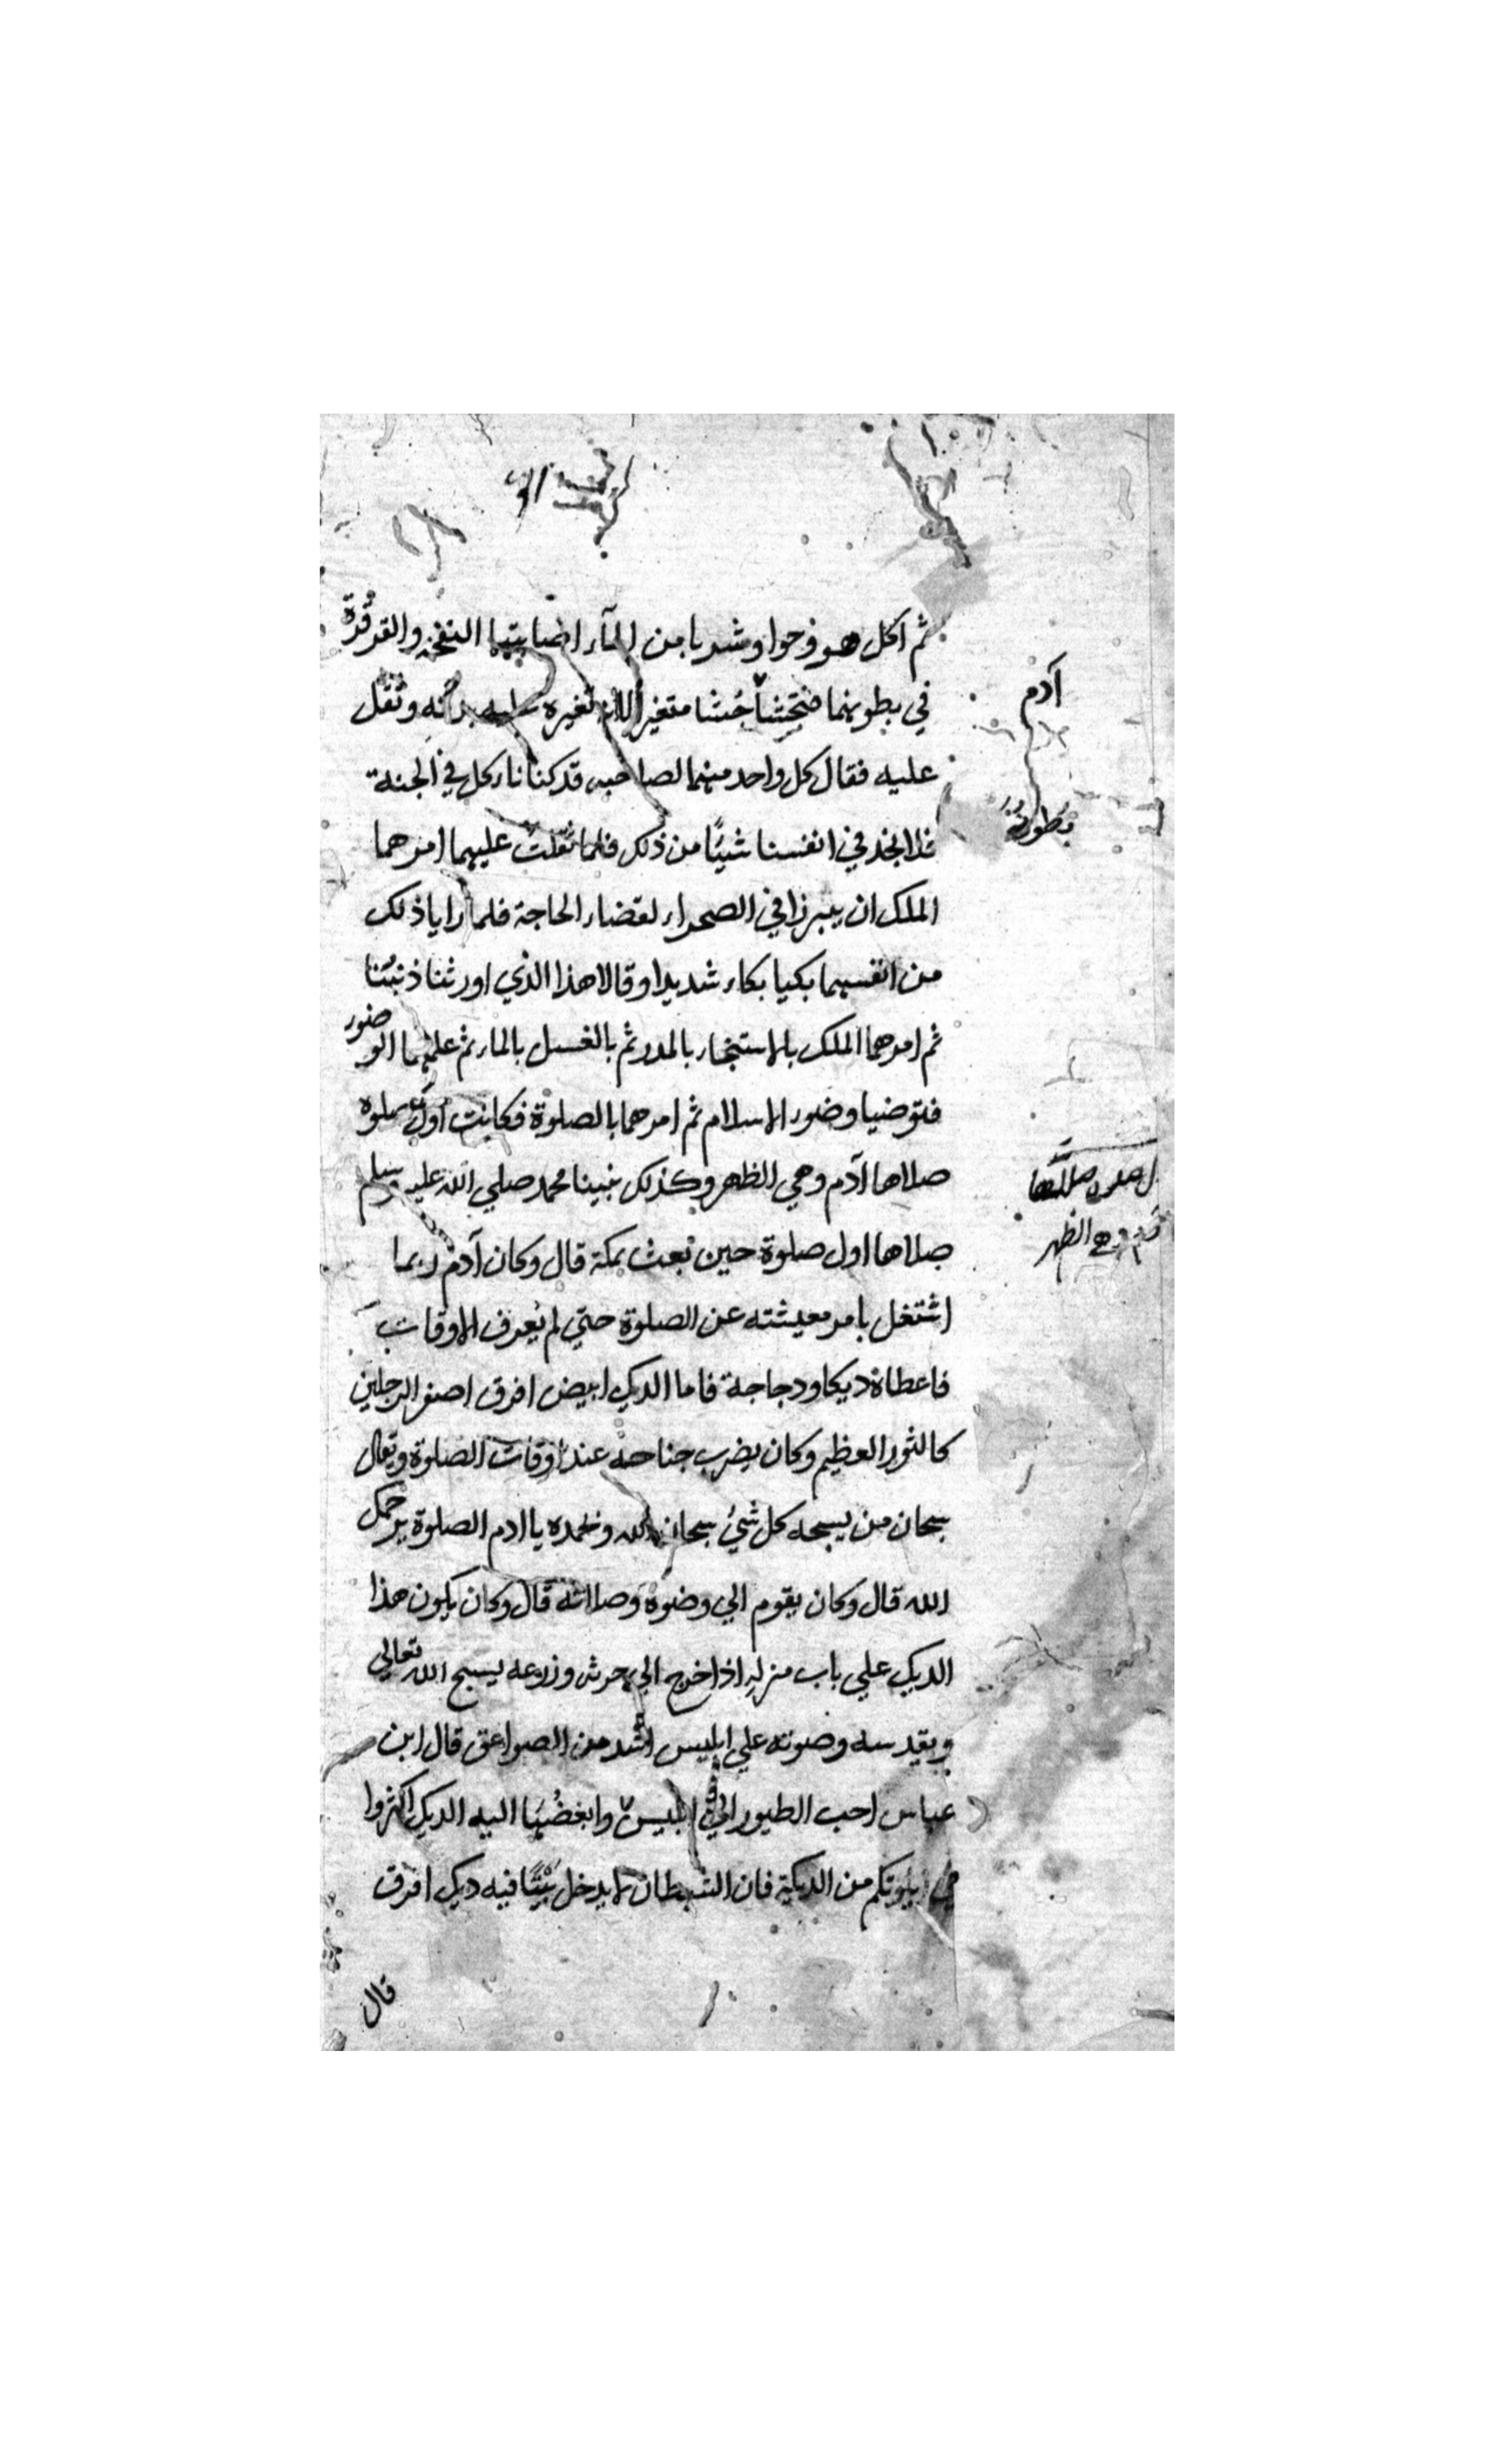 ثم اكل هو وحوا وشربا من المآء اصابتهما النفخ والقرقرة
في بطونهما فتجشأ جشا متغيرا لان تغيره عليه بدنه وثقل
عليه فقال كل واحد منهما لصاحبه قد كنا ناكل في الجنة
فلا نجد في انفسنا شيئًا من ذلك فلما ثقلت عليهما امرهما
الملك ان يبرزا في الصحراء لقضاء الحاجة فلما رايا ذلك
من انفسهما بكيا بكاء شديدا وقالا هذا الذي اورثنا ذنبنا
ثم امرهما الملك بالاستنجاء بالمدر ثم بالغسل بالماء ثم علمهما الوضوء
فتوضيا وضوء الاسلام ثم امرهما بالصلوة فكانت اول صلوة
صلاها آدم وهي الظهر وكذلك نبينا محمد صلي الله عليه وسلم
صلاها اول صلوة حين بعث بمكة قال وكان آدم ربما
اشتغل بامر معيشته عن الصلوة حتي لم يعرف الاوقات
فاعطاه ديكا ودجاجة فاما الديك ابيض افرق اصفر الرجلين
كالثور العظيم وكان يضرب جناحه عند اوقات الصلوة ويقال
سبحان من يسبحه كل شيء سبحان الله وبحمده يا ادم الصلوة يرحمك
الله قال وكان يقوم الي وضوه وصلاته قال وكان يكون هذا
الديك علي باب منزله اذا خرج الي حرثه وزرعه يسبح الله تعالي
ويقدسه وصوته علي ابليس اشد من الصواعق قال ابن
عباس احب الطيور الي ابليس وابغضها اليه الديك اكثروا
في بيوتكم من الديكة فان الشيطان لا يدخل بيتًا فيه ديك افرق
قال
آدم
بطونه
وهي الظهر